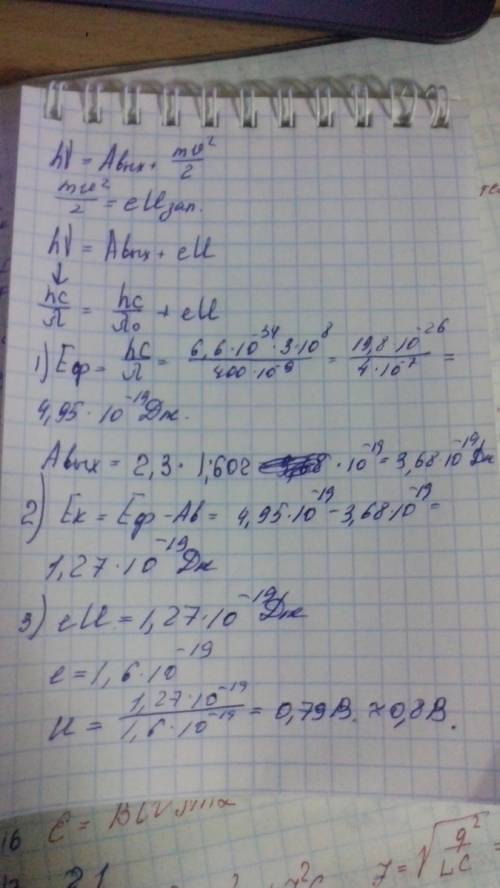 hν = Aвых + mv²/2
mv²/2 = eUзап.
hν = Aвых + eU
↓
hc/λ = hc/λ₀ + eU
1) Eф = hc/λ = 6,6·10⁻³⁴·3·10⁸/400·10⁻⁹ = 19,8·10⁻²⁶/4·10⁻⁷ =
4,95·10⁻¹⁹ Дж.
Aвых = 2,3·1,602 ·10⁻¹⁹ = 3,68·10⁻¹⁹ Дж
2) Eк = Eф − Aв = 4,95·10⁻¹⁹ − 3,68·10⁻¹⁹ =
1,27·10⁻¹⁹ Дж
3) eU = 1,27·10⁻¹⁹ Дж
e = 1,6·10⁻¹⁹
U = 1,27·10⁻¹⁹/1,6·10⁻¹⁹ = 0,79 В. ≈ 0,8 В.
16 Ɛ = BLV sinα
= √q²/LC =